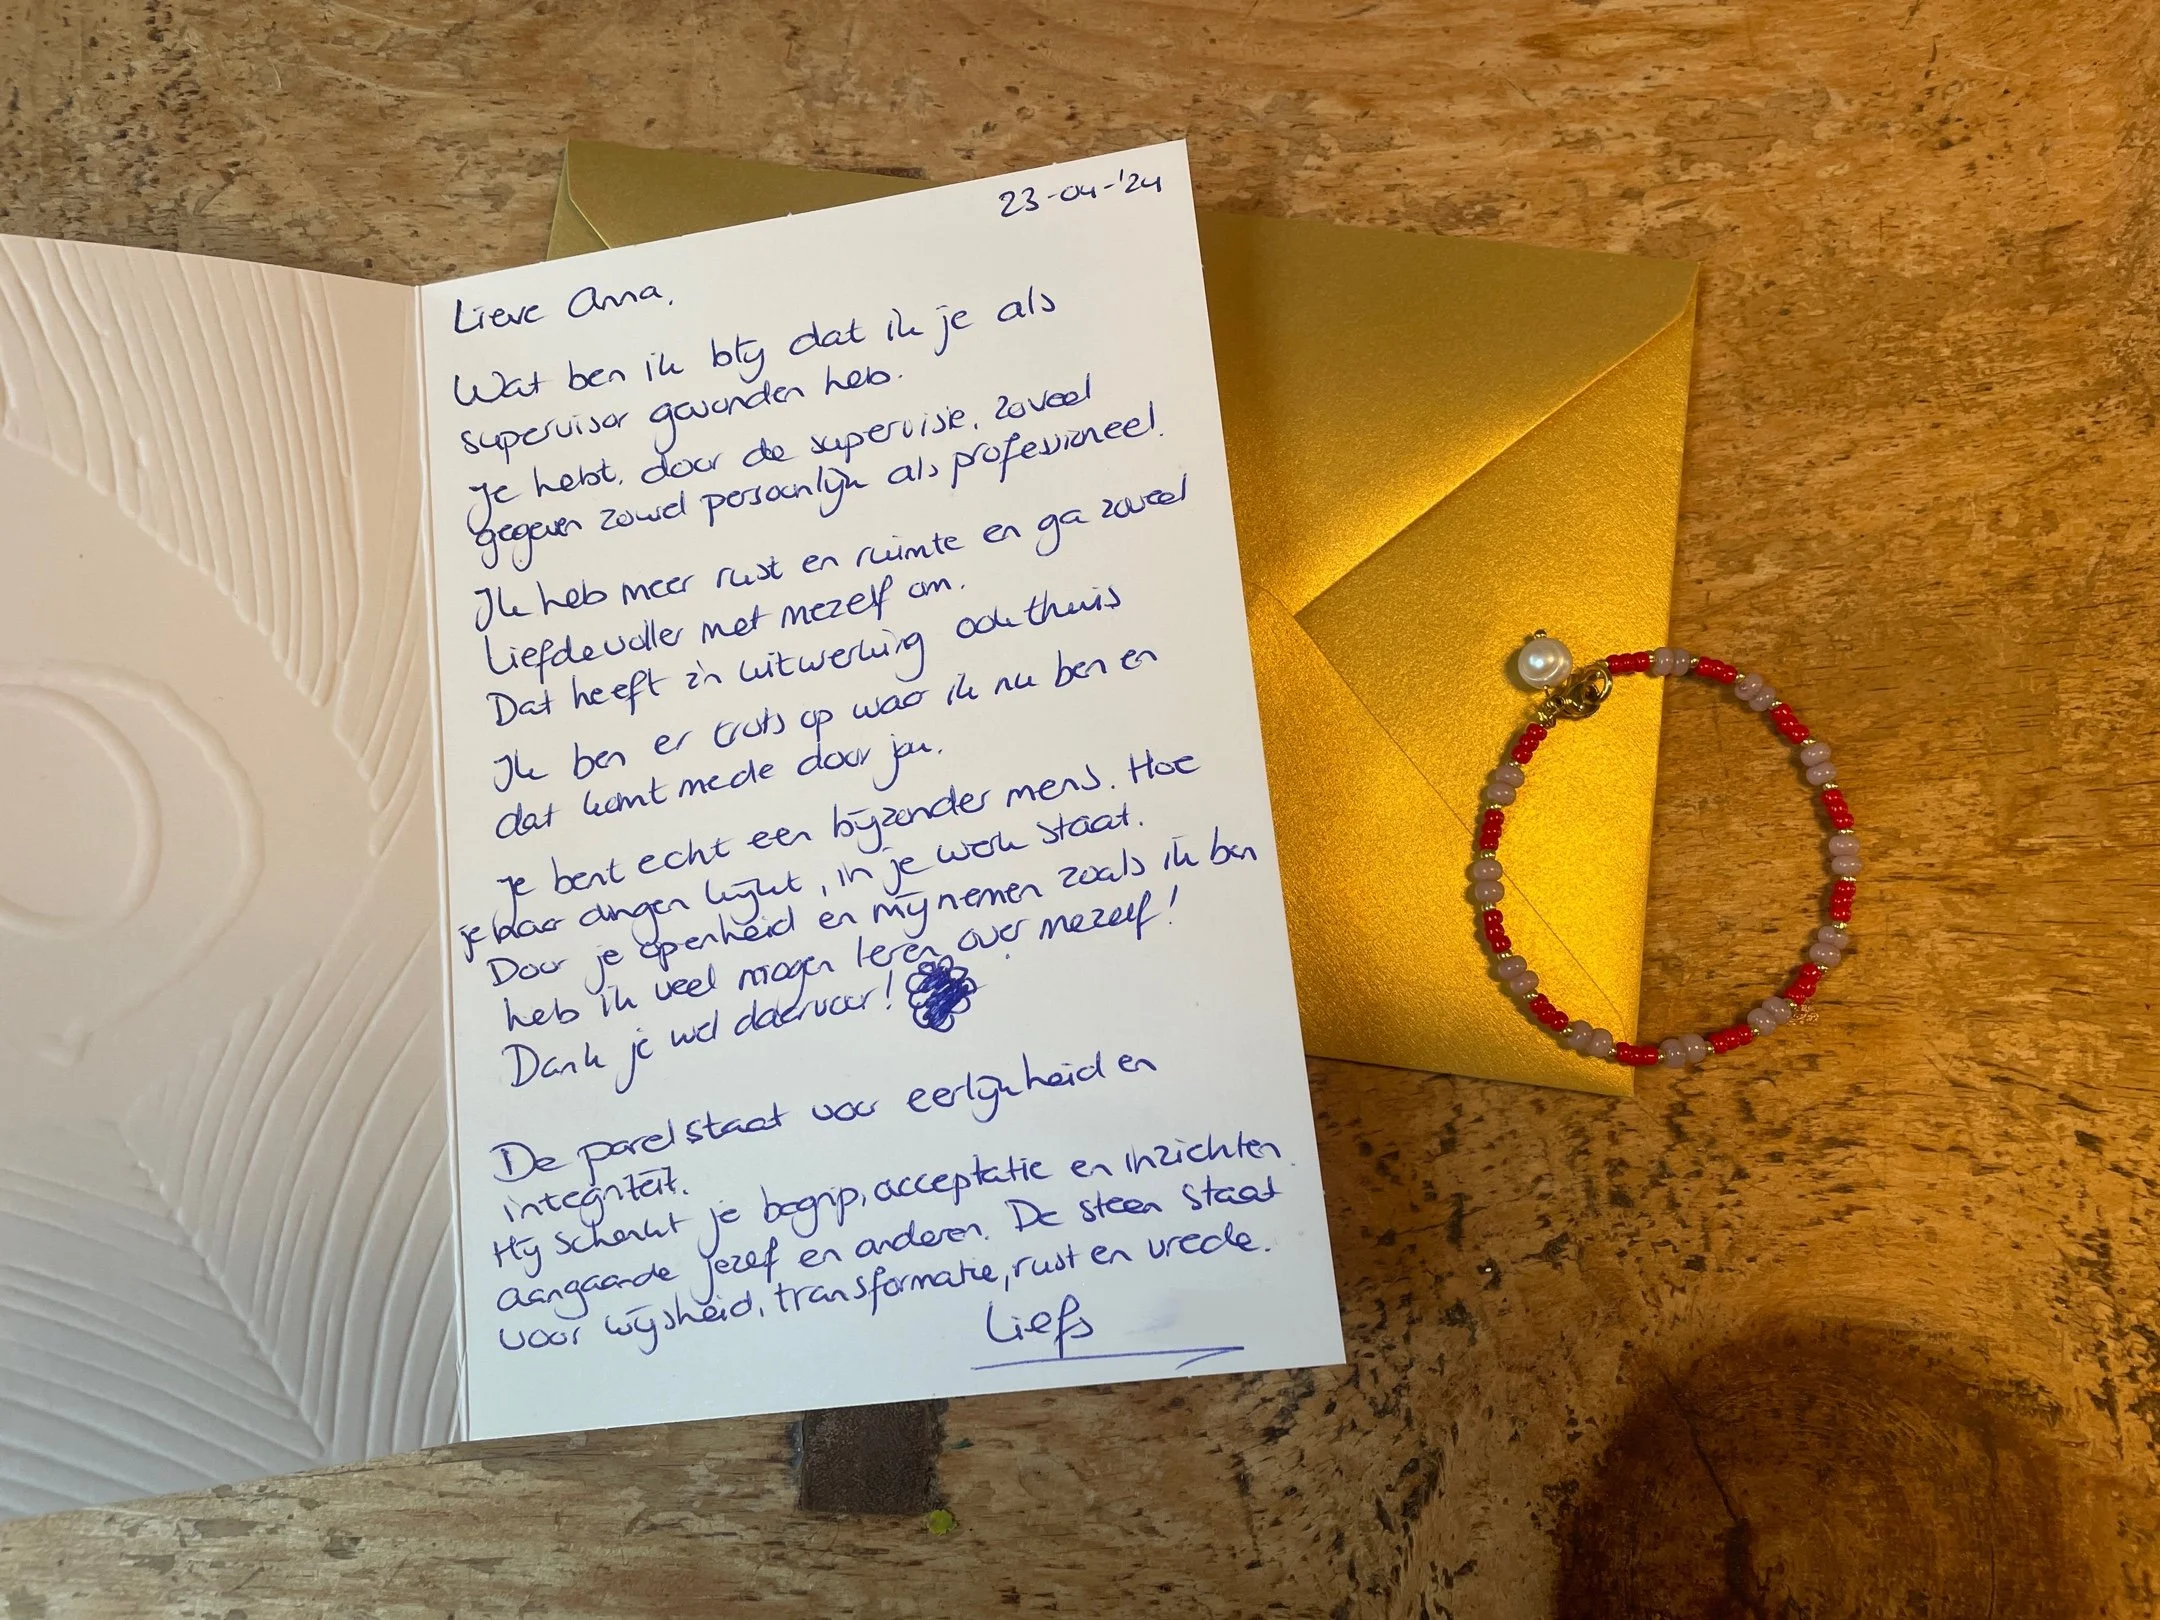 23-04-'24
Lieve Anna,
Wat ben ik blij dat ik je als
supervisor gevonden heb.
Je hebt, door de supervisie, zoveel
gegeven zowel persoonlijk als professioneel.
Ik heb meer rust en ruimte en ga zoveel
liefdevoller met mezelf om.
Dat heeft z'n uitwerking ook thuis
Ik ben er trots op waar ik nu ben en
dat komt mede door jou.
Je bent echt een bijzonder mens. Hoe
je naar dingen kijkt, in je werk staat.
Door je openheid en mij nemen zoals ik ben
heb ik veel mogen leren over mezelf!
Dank je wel daarvoor!
De parel staat voor eerlijkheid en
integriteit.
Hij schenkt je begrip, acceptatie en inzichten
aangaande jezelf en anderen. De steen staat
voor wijsheid, transformatie, rust en vrede.
Liefs